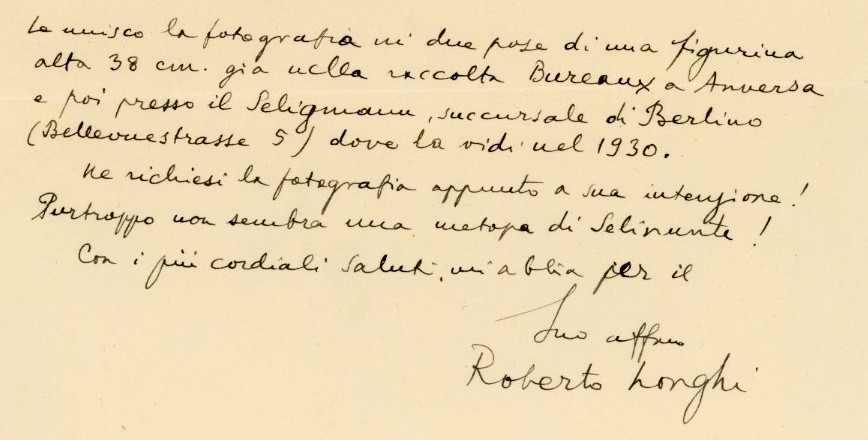 Le unisco la fotografia in due pose di una figurina
alta 38 cm. già nella raccolta Bureaux a Anversa
e poi presso il Seligmann, succursale di Berlino
(Bellevuestrasse 5) dove la vidi nel 1930.
Ne richiesi la fotografia appunto a sua intenzione!
Purtroppo non sembra una metopa di Selinunte!
Con i più cordiali saluti, mi abbia per il
Suo affmo
Roberto Longhi